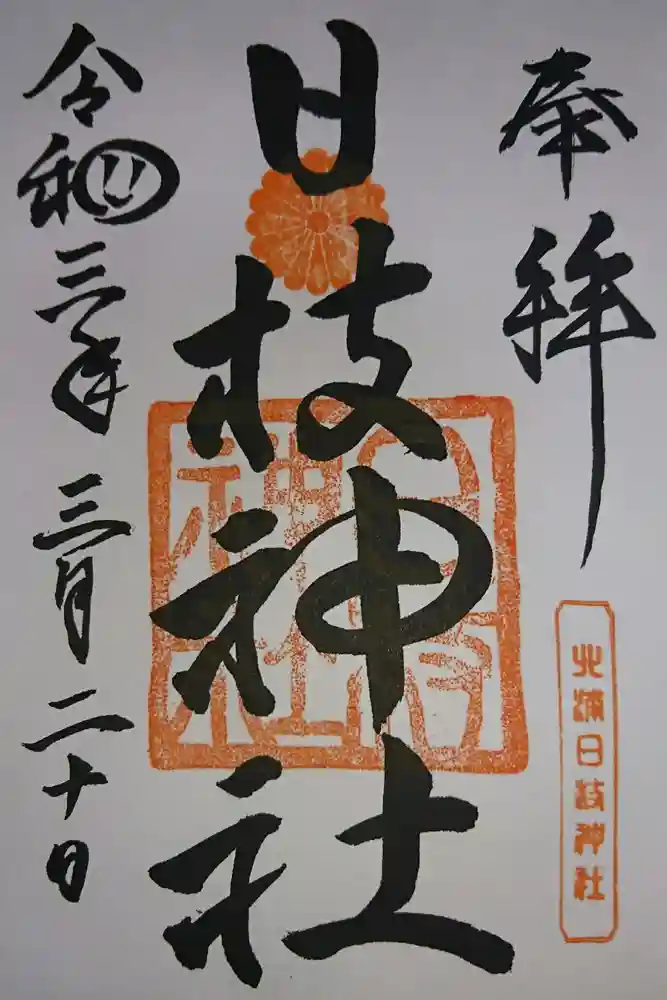 奉拝
北浦日枝神社
日枝神社
日枝
神社
令和三年三月二十日